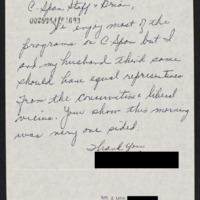 C-Span Staff & Brian,
We enjoy most of the
programs on C Span but I
and my husband think some
should have equal representives
from the conservitives liberal
views. Your show this morning
was very one sided.
Thank You